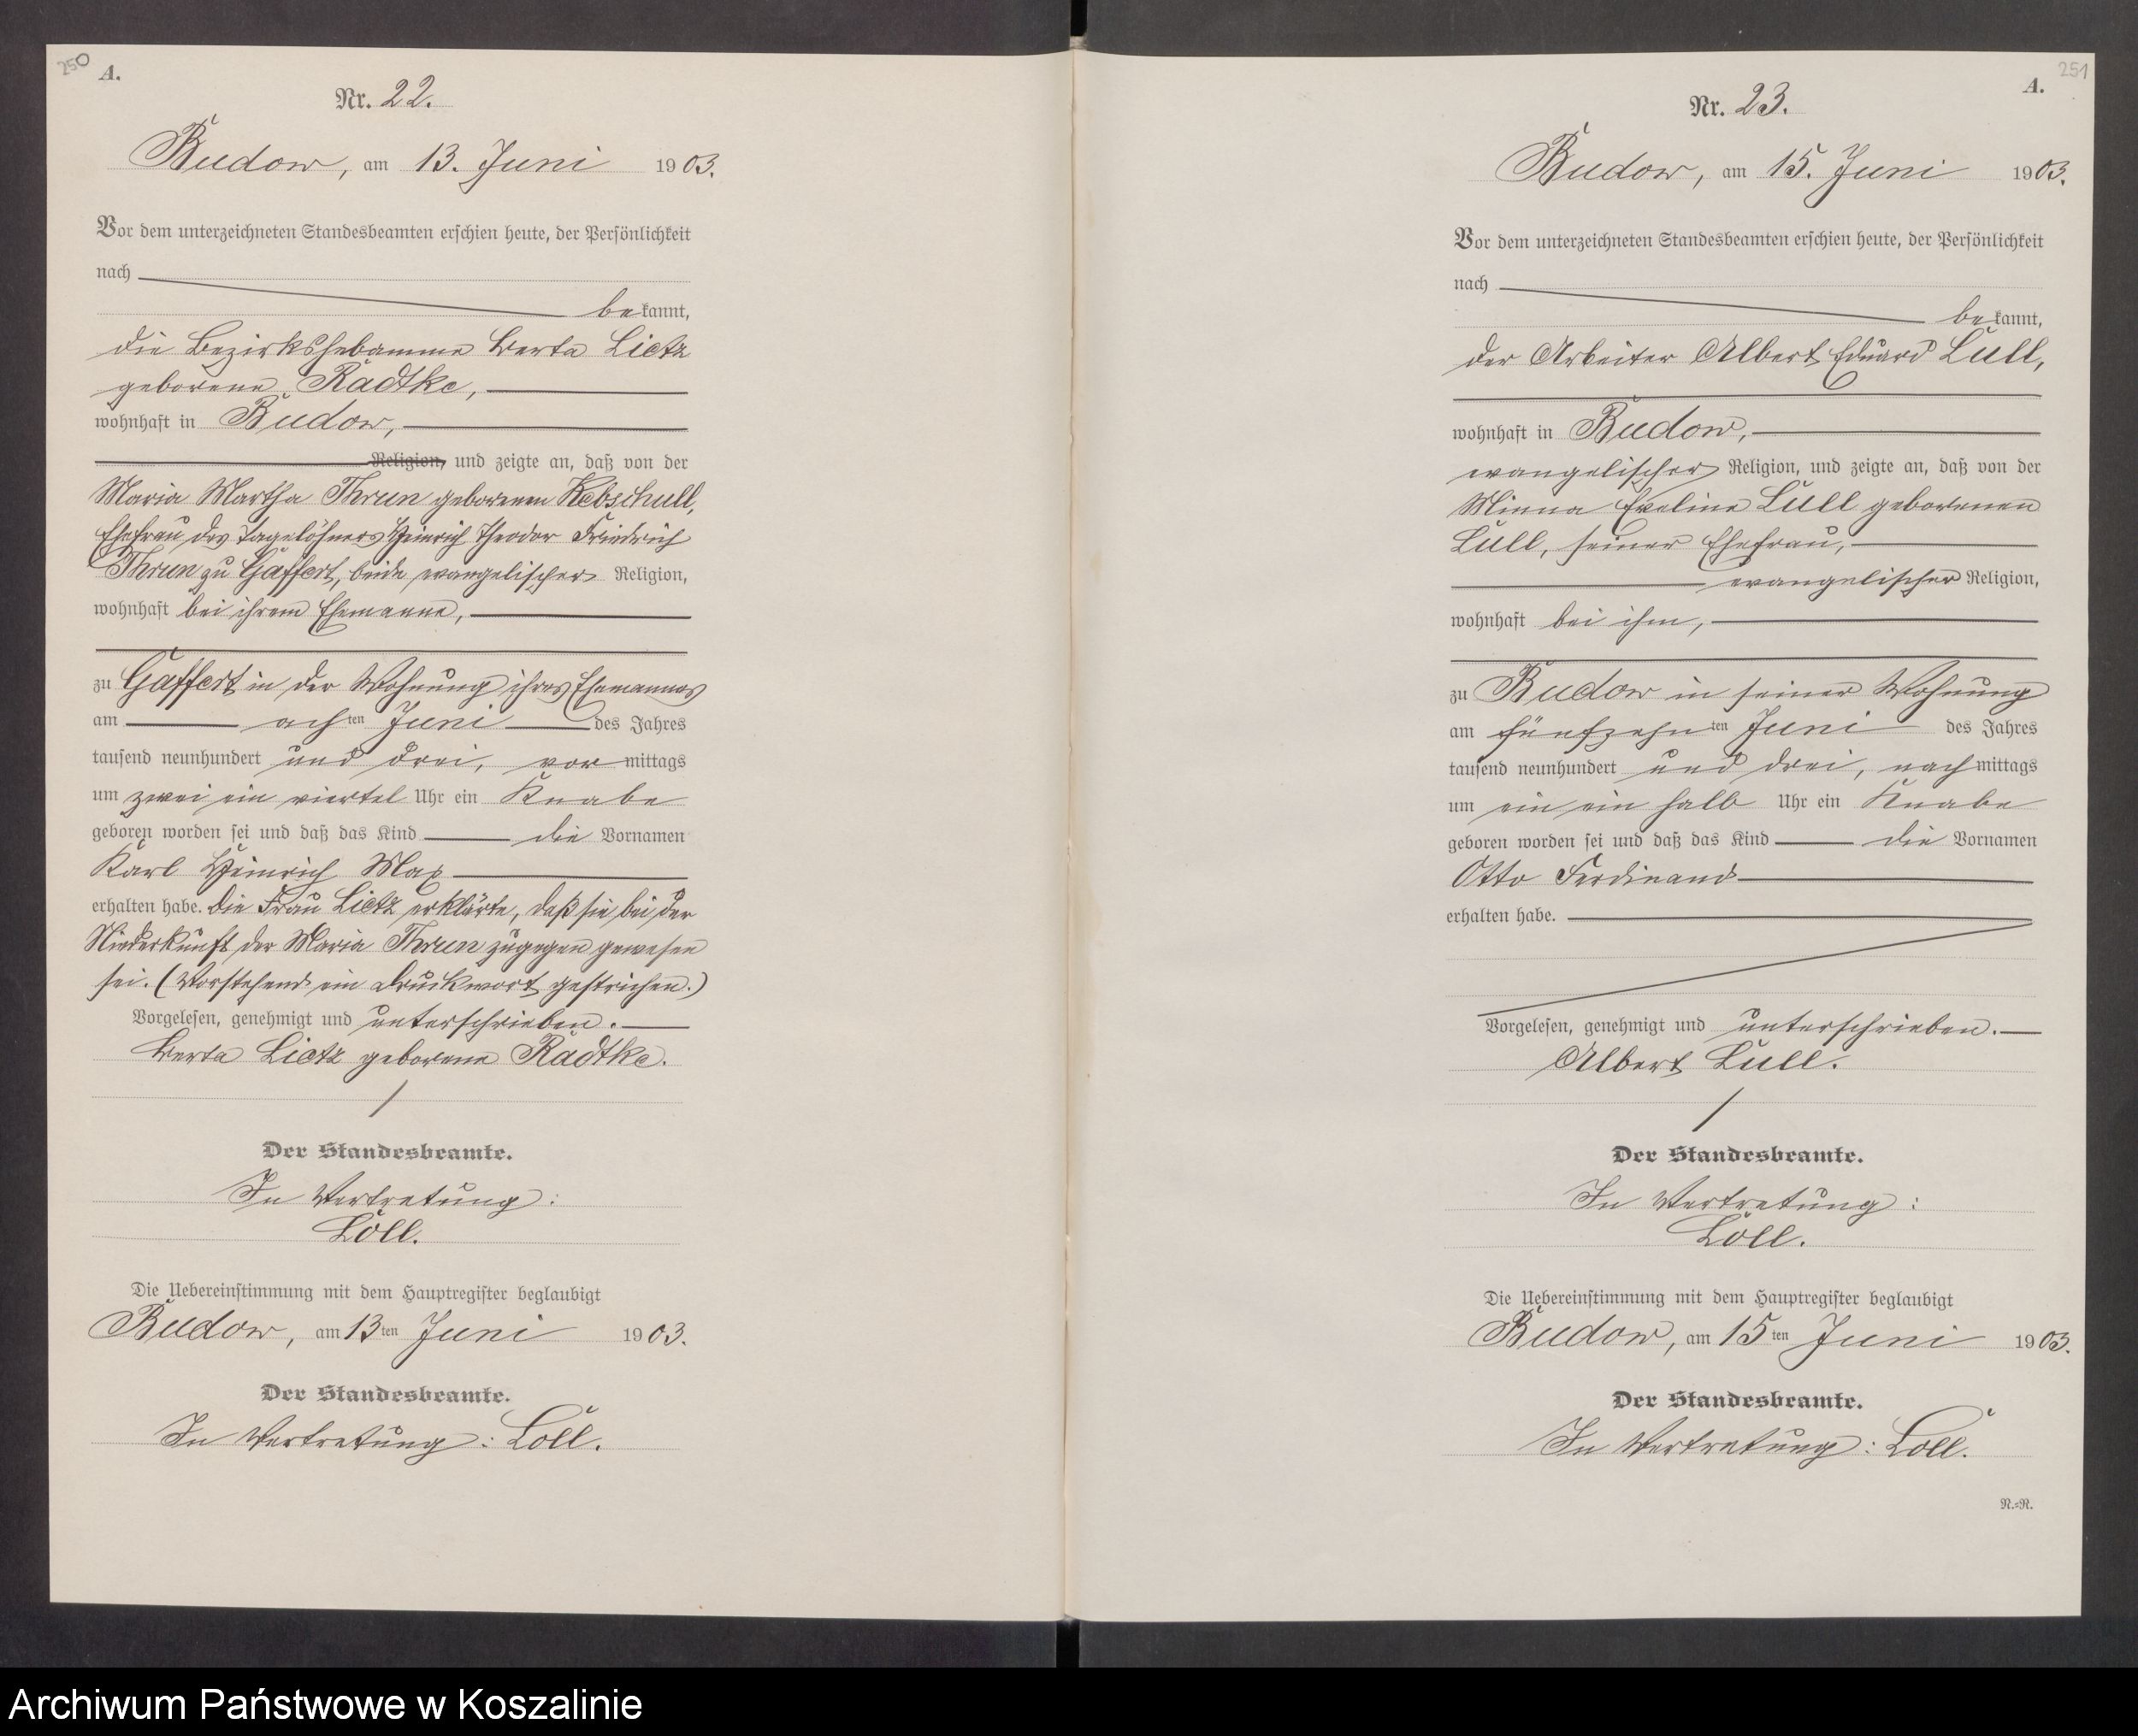 250
A.
Nr. 22.
Budow, am 13. Juni 1903.
Vor dem unterzeichneten Standesbeamten erschien heute, der Persönlichkeit
nach
bekannt,
die Bezirkshebamme Berta Lietz
geborene Radtke,
wohnhaft in Budow,
Religion, und zeigte an, daß von der
Maria Martha Thrun geborenen Kebschull,
Ehefrau des Tagelöhners Heinrich Theodor Friedrich
Thrun zu Gaffert, beide evangelischer Religion,
wohnhaft bei ihrem Ehemanne,
zu Gaffert in der Wohnung ihres Ehemannes
am achten Juni des Jahres
tausend neunhundert und drei, vormittags
um zwei ein viertel Uhr ein Knabe
geboren worden sei und daß das Kind die Vornamen
Karl Heinrich Max
erhalten habe. Die Frau Lietz erklärte, daß sie bei der
Niederkunft der Maria Thrun zugegen gewesen
sei. (Vorstehend ein Druckwort gestrichen.)
Vorgelesen, genehmigt und unterschrieben.
Berta Lietz geborene Radtke.
Der Standesbeamte.
In Vertretung:
Löll.
Die Uebereinstimmung mit dem Hauptregister beglaubigt
Budow, am 13ten Juni 1903.
Der Standesbeamte.
In Vertretung: Löll.
251
A.
Nr. 23.
Budow, am 15. Juni 1903.
Vor dem unterzeichneten Standesbeamten erschien heute, der Persönlichkeit
nach
bekannt,
der Arbeiter Albert Eduard Lüll,
wohnhaft in Budow,
evangelischer Religion, und zeigte an, daß von der
Minna Eveline Lüll geborenen
Lüll, seiner Ehefrau,
evangelischer Religion,
wohnhaft bei ihm,
zu Budow in seiner Wohnung
am fünfzehnten Juni des Jahres
tausend neunhundert und drei, nachmittags
um ein ein halb Uhr ein Knabe
geboren worden sei und daß das Kind die Vornamen
Otto Ferdinand
erhalten habe.
Vorgelesen, genehmigt und unterschrieben.
Albert Lüll.
Der Standesbeamte.
In Vertretung:
Löll.
Die Uebereinstimmung mit dem Hauptregister beglaubigt
Budow, am 15ten Juni 1903.
Der Standesbeamte.
In Vertretung: Löll.
N.=R.
Archiwum Państwowe w Koszalinie